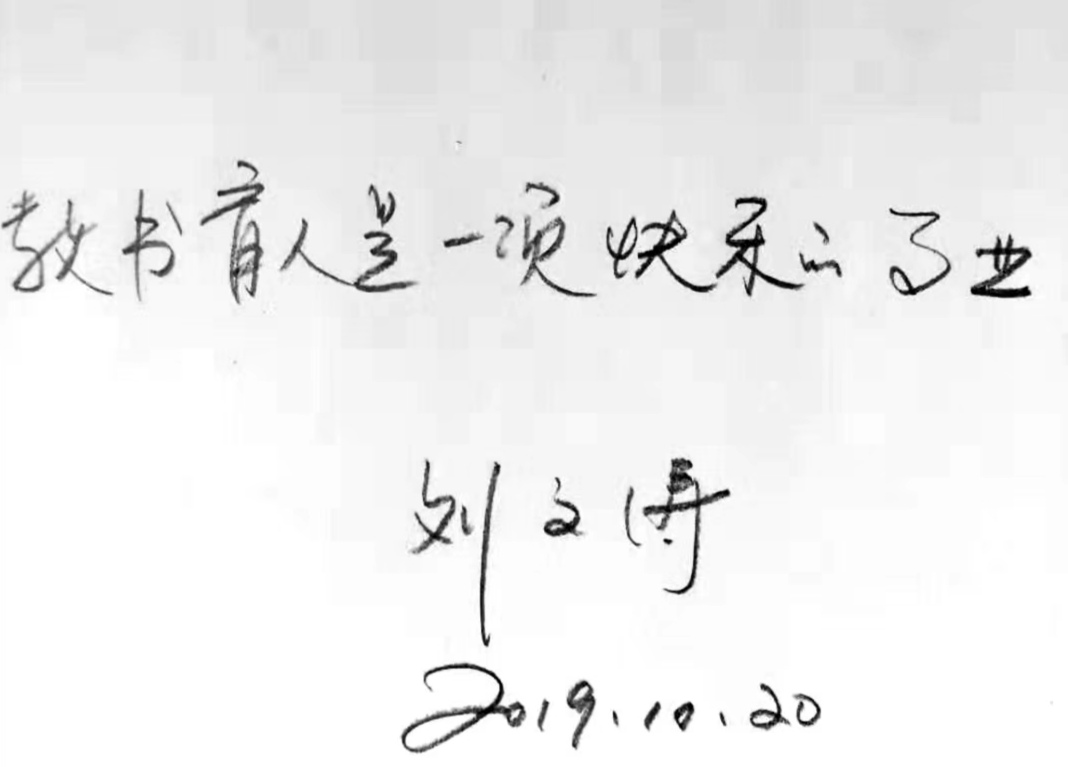 教书育人是一项快乐的事业
刘文
2019.10.20